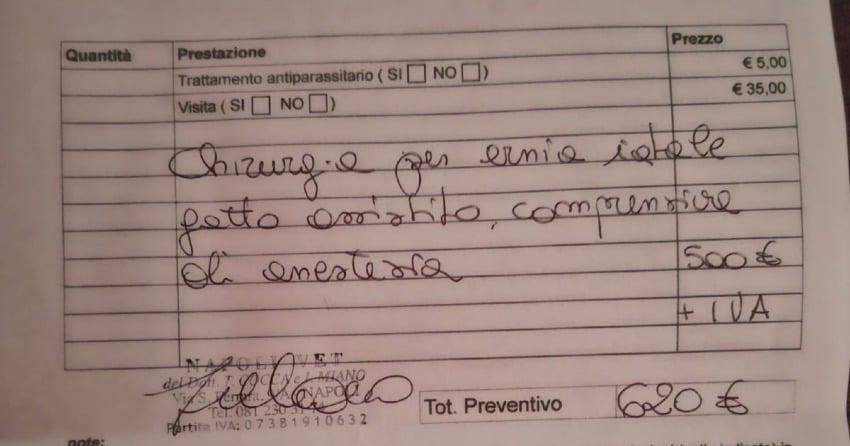 Quantità Prestazione Prezzo
Trattamento antiparassitario ( SI NO ) € 5,00
Visita ( SI NO ) € 35,00
Chirurgia per ernia iatale
gatto assistito, comprensiva
di anestesia 500 €
+ IVA
NAPOLI VET
del Dott. MIANO
Via S. NAPOLI
Tel. 081 230
Partita IVA: 0 7 3 8 1 9 1 0 6 3 2
Tot. Preventivo 620 €
note: